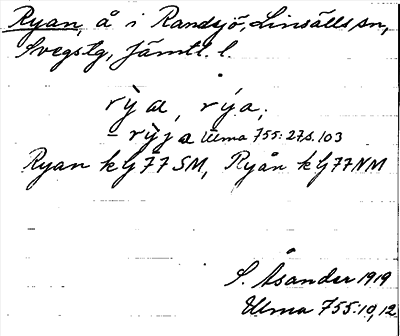 Ryan, å i Randsjö, Linsälls sn,
Svegs tg, Jämtl. l.
rỳa, rýa,
– rỳja Ulma 755:27 s. 103
Ryan k G77SM, Ryån k G77NM
S. Åsander 1919
Ulma 755:10,12